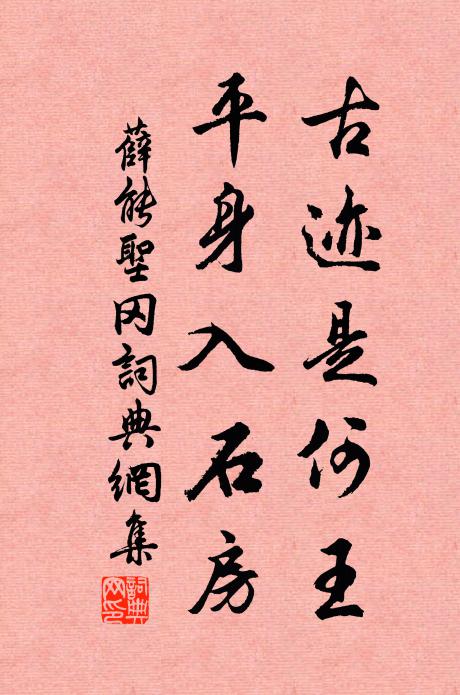 古迹是何王
平身入石房
薛能聖冈詞典網集
詞典網印